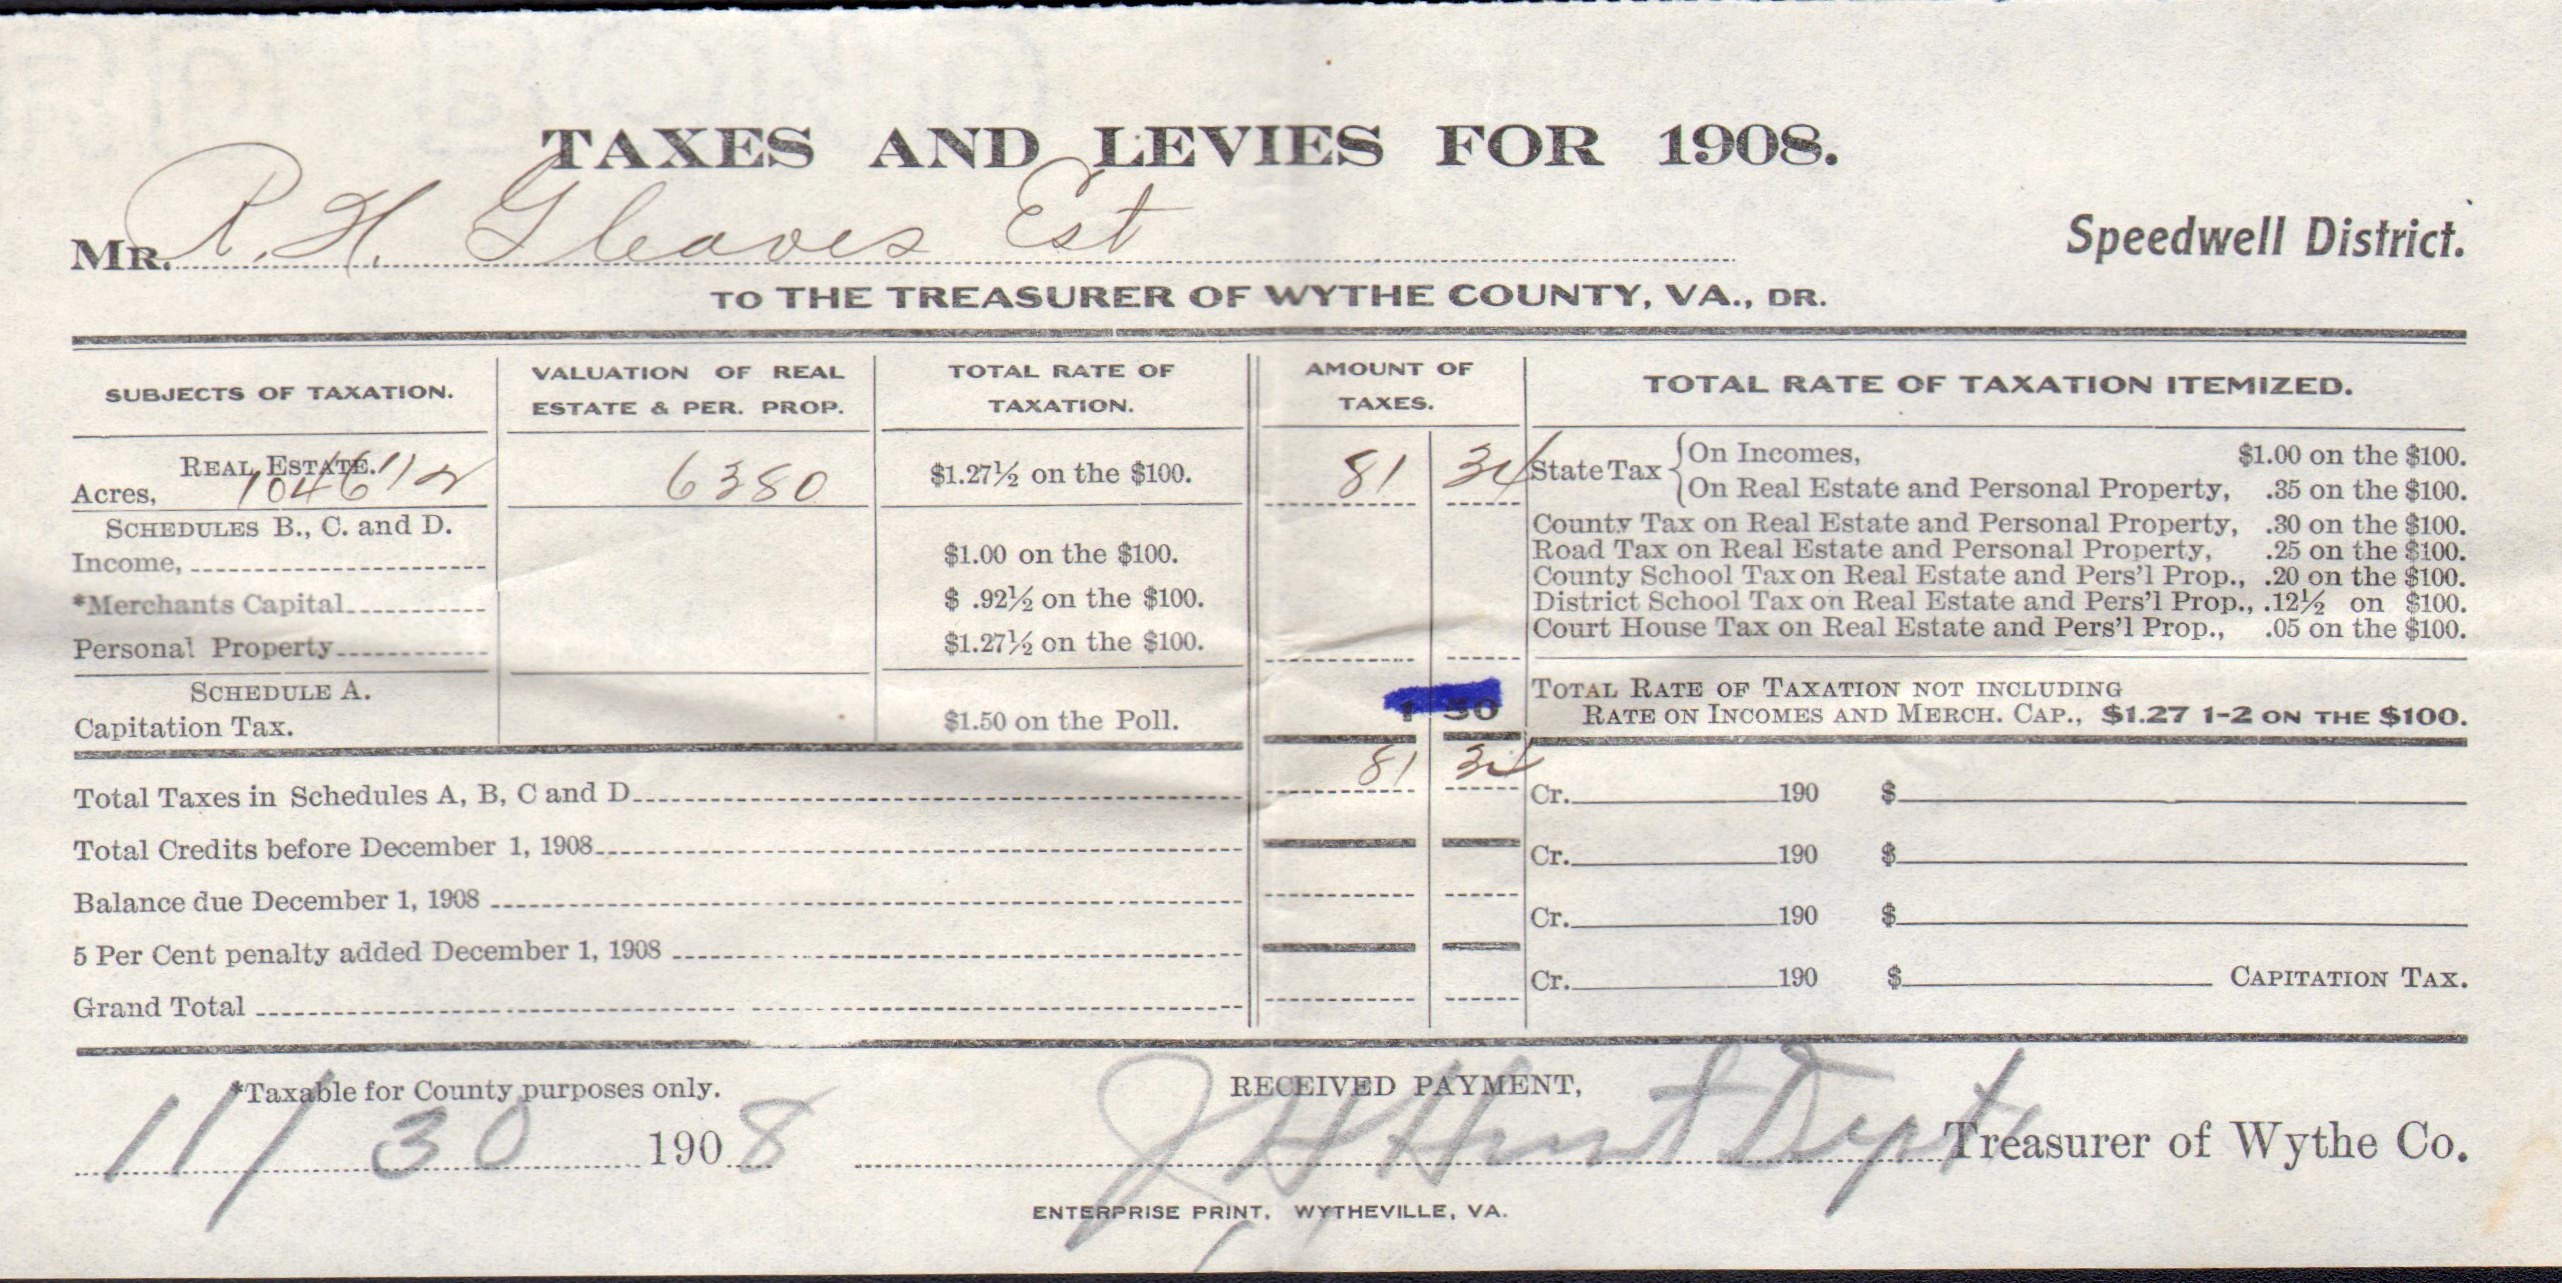 TAXES AND LEVIES FOR 1908.
MR. R. H. Gleaves Est
Speedwell District.
TO THE TREASURER OF WYTHE COUNTY, VA., DR.
SUBJECTS OF TAXATION.
VALUATION OF REAL ESTATE & PER. PROP.
TOTAL RATE OF TAXATION.
AMOUNT OF TAXES.
TOTAL RATE OF TAXATION ITEMIZED.
REAL ESTATE.
Acres, 1046 1/2 6380 $1.27½ on the $100. 81 34
SCHEDULES B., C. and D.
Income, $1.00 on the $100.
*Merchants Capital $ .92½ on the $100.
Personal Property $1.27½ on the $100.
SCHEDULE A.
Capitation Tax. $1.50 on the Poll. 1 50
State Tax { On Incomes, $1.00 on the $100.
On Real Estate and Personal Property, .35 on the $100.
County Tax on Real Estate and Personal Property, .30 on the $100.
Road Tax on Real Estate and Personal Property, .25 on the $100.
County School Tax on Real Estate and Pers'l Prop., .20 on the $100.
District School Tax on Real Estate and Pers'l Prop., .12½ on $100.
Court House Tax on Real Estate and Pers'l Prop., .05 on the $100.
TOTAL RATE OF TAXATION NOT INCLUDING
RATE ON INCOMES AND MERCH. CAP., $1.27 1-2 ON THE $100.
Total Taxes in Schedules A, B, C and D 81 34
Total Credits before December 1, 1908
Balance due December 1, 1908
5 Per Cent penalty added December 1, 1908
Grand Total
Cr. 190 $
Cr. 190 $
Cr. 190 $
Cr. 190 $ CAPITATION TAX.
*Taxable for County purposes only.
RECEIVED PAYMENT,
11/30 1908
J H Hunt Dept Treasurer of Wythe Co.
ENTERPRISE PRINT, WYTHEVILLE, VA.